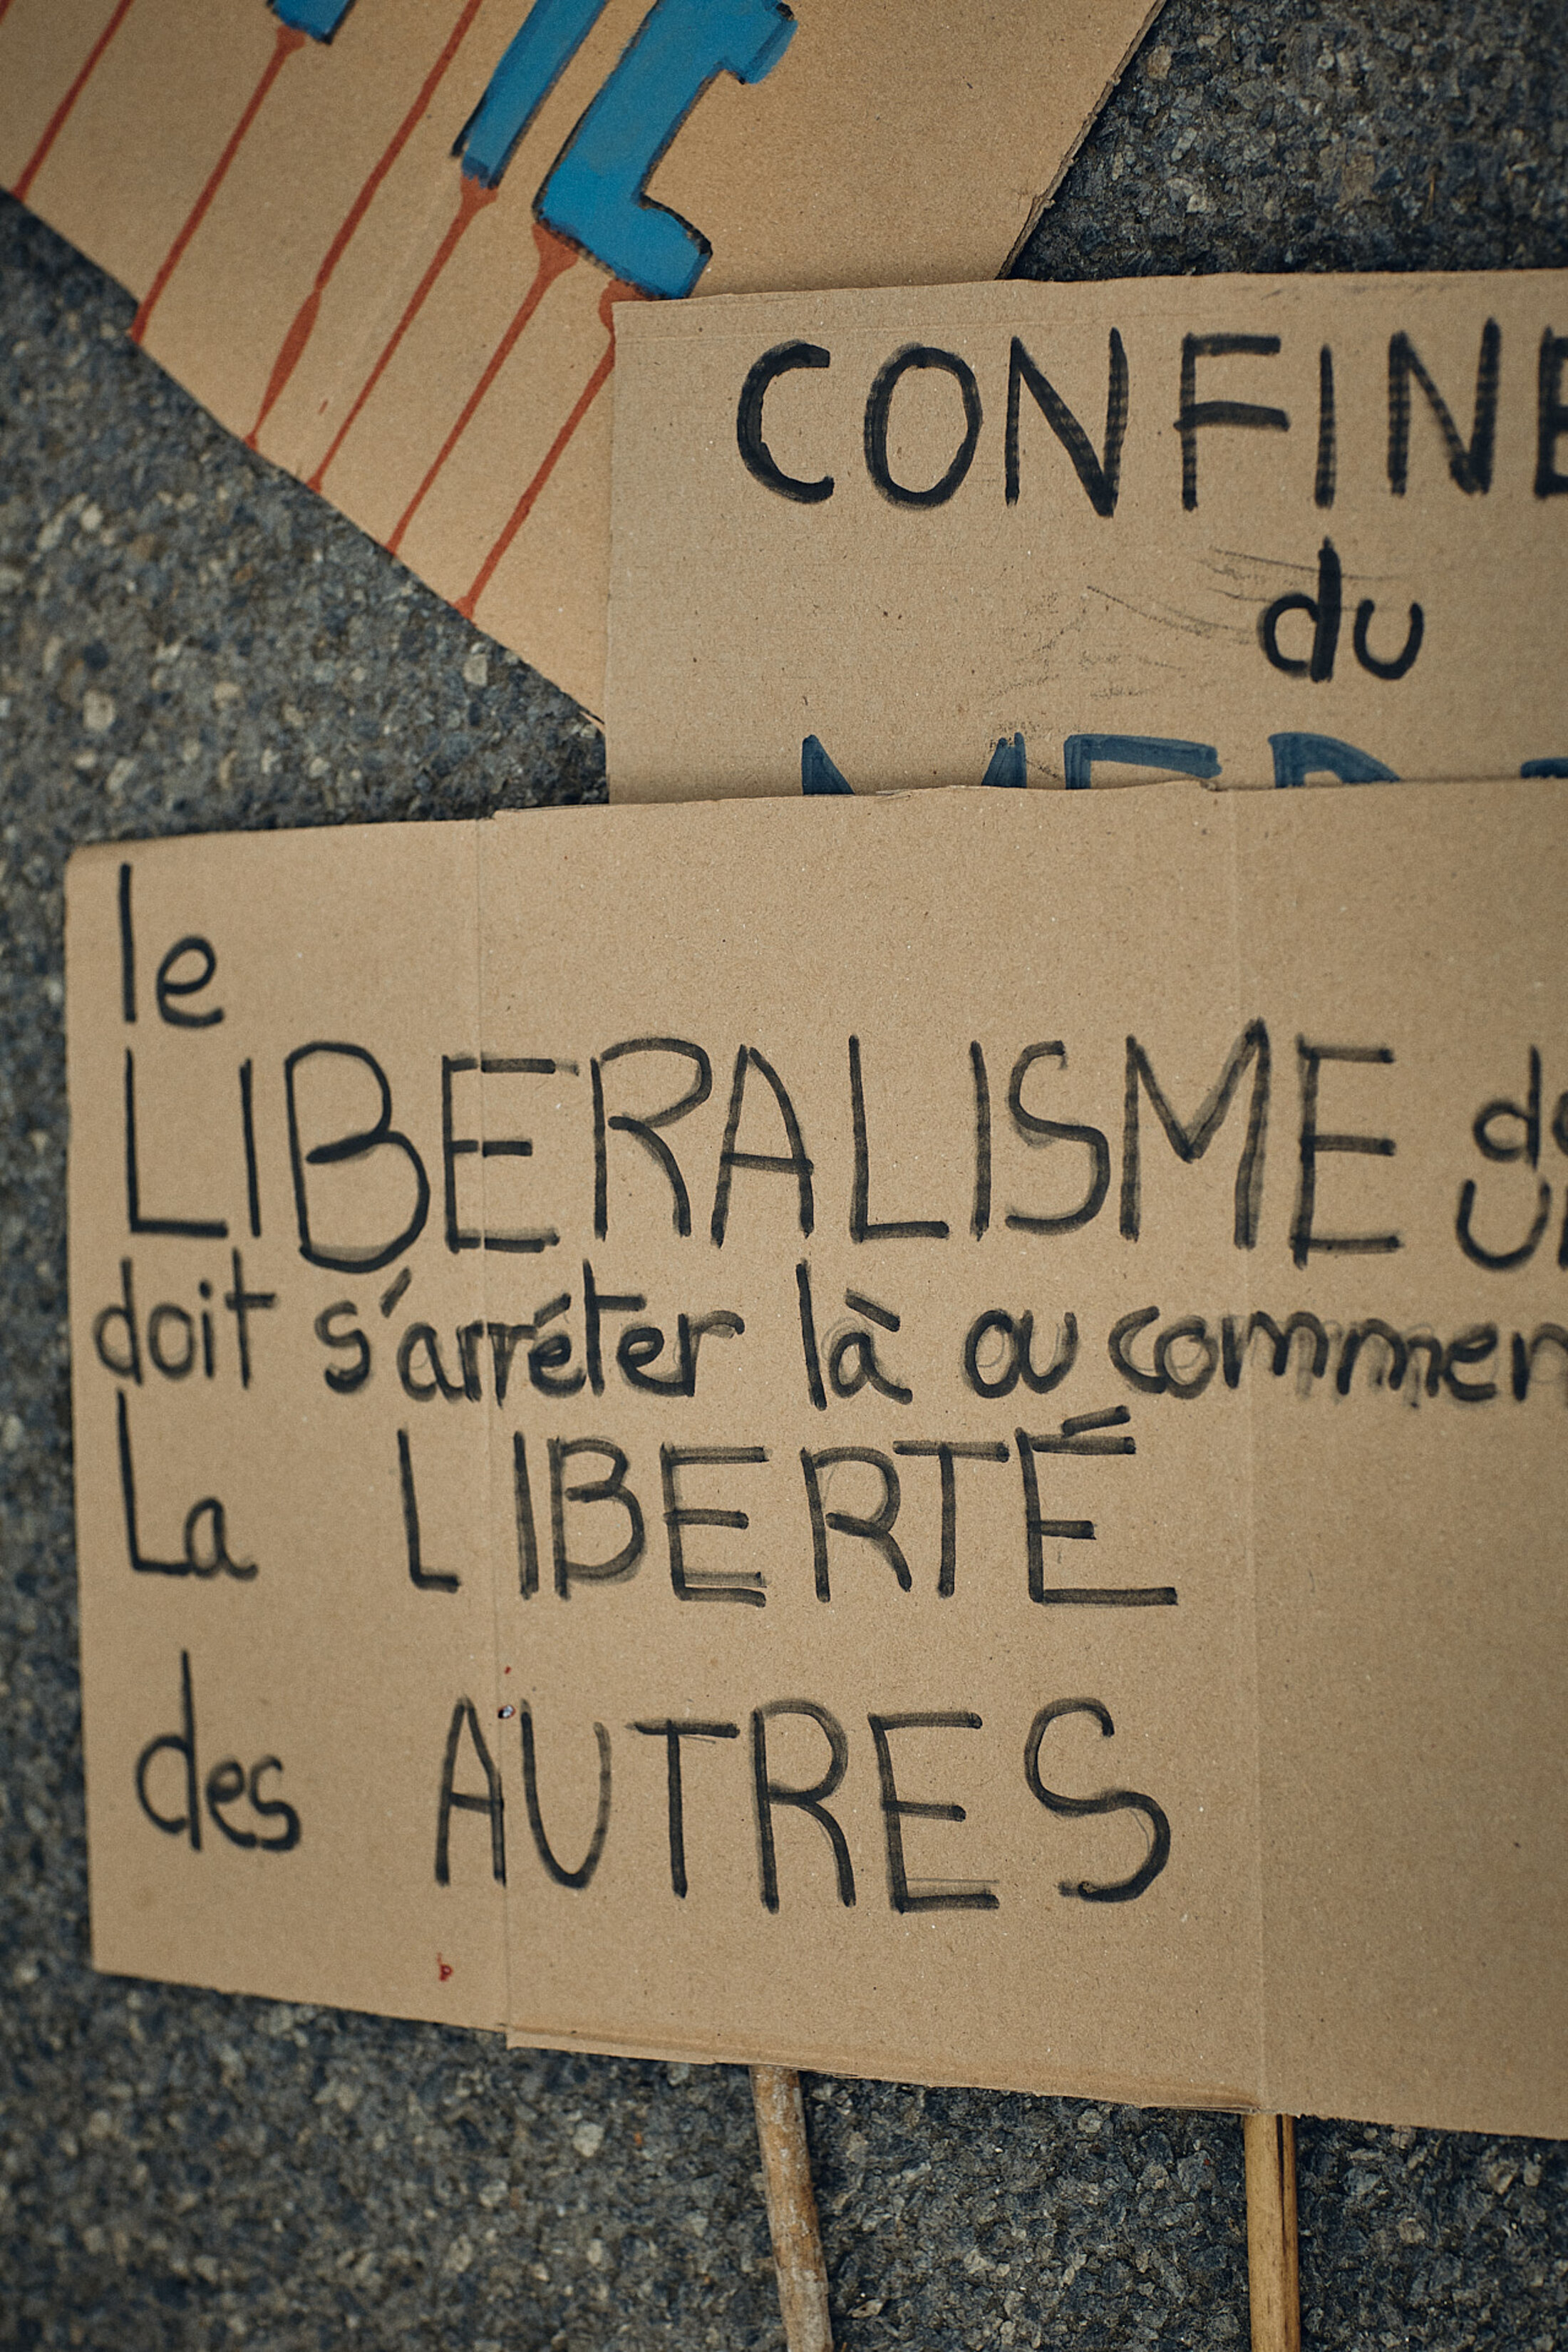 CONFINE
du
le
LIBERALISME
doit s'arréter là ou commen
La LIBERTÉ
des AUTRES